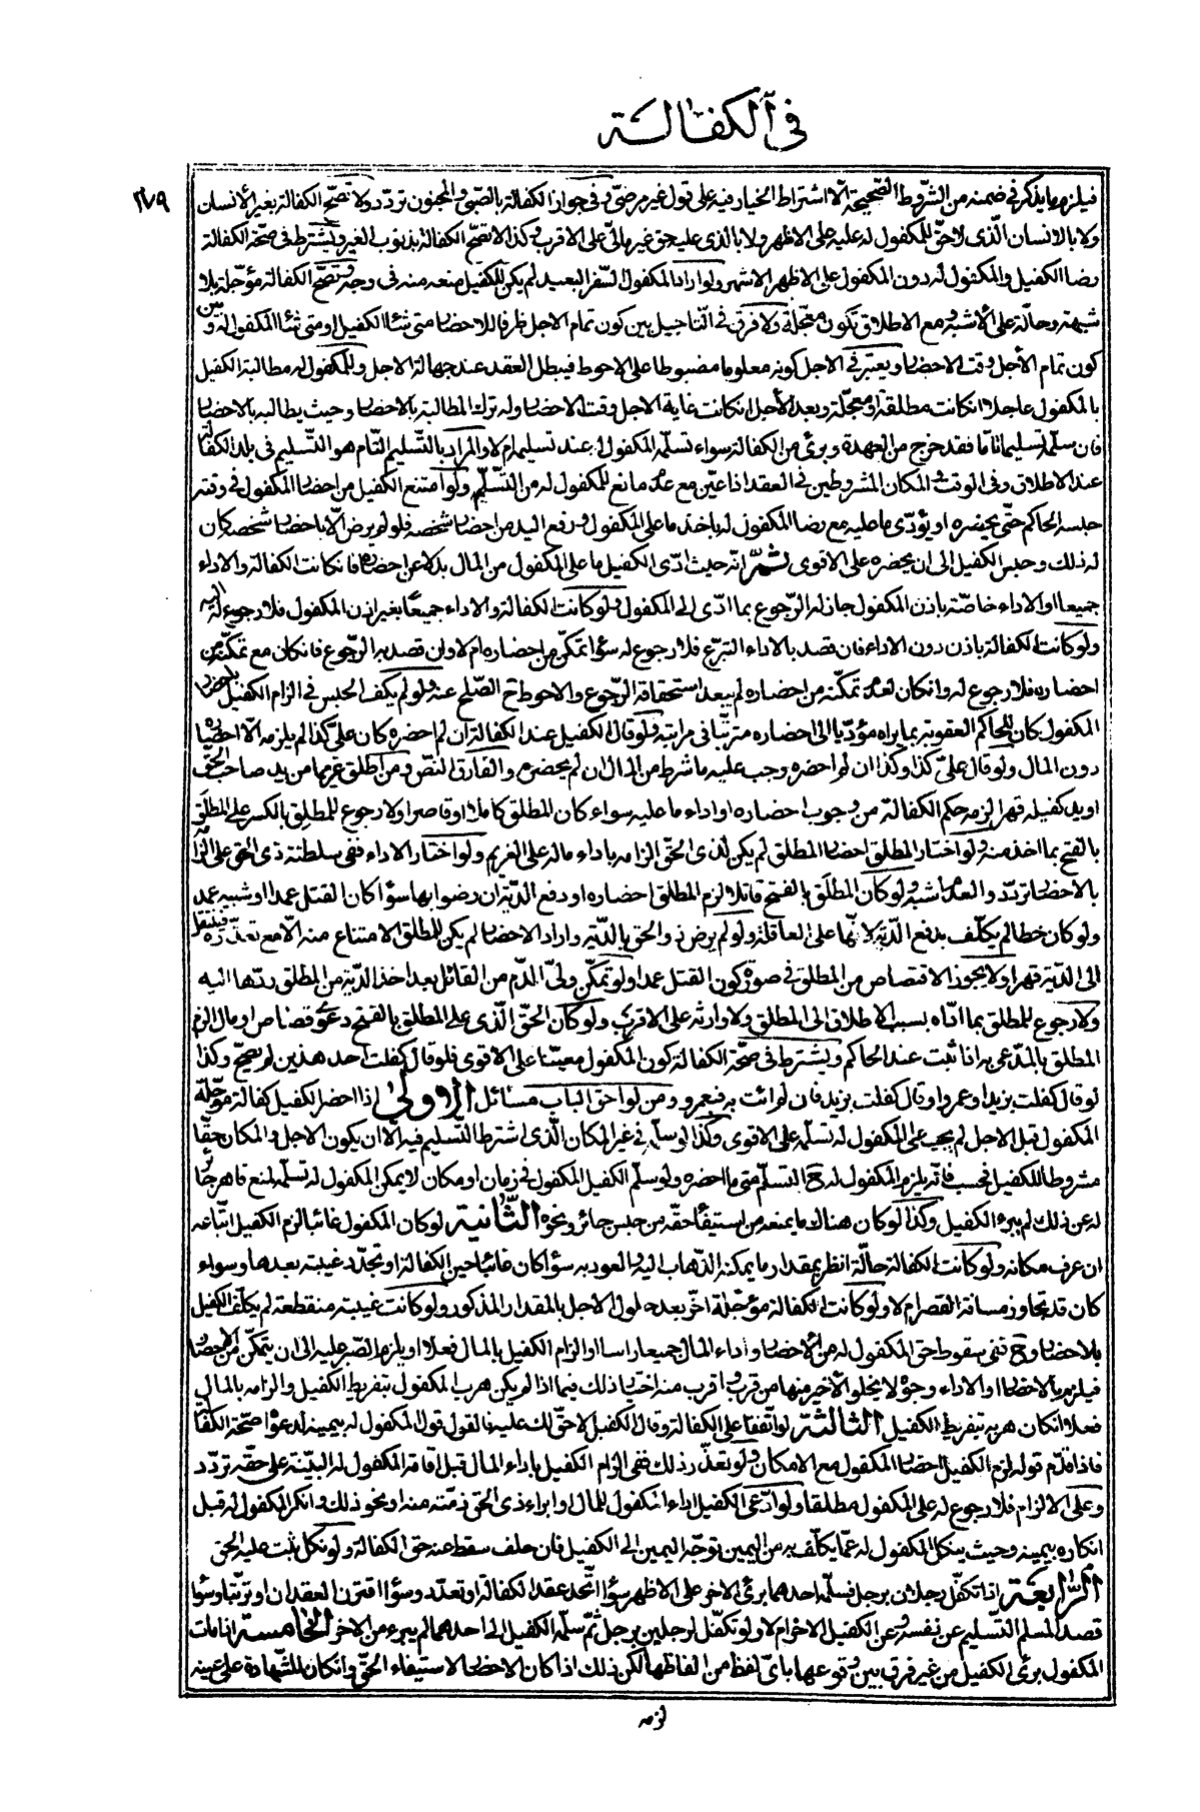 في الكفالة
٢٧٩
فيلزم ما يذكر في ضمنه من الشّروط الصّحيحة الّا اشتراط الخيار فيه على قول غير مرضيّ وفي جواز الكفالة بالصّبي والمجنون تردّد ولا تصحّ الكفالة بغير الأنسان
ولا بالانسان الّذي لا حقّ للمكفول له عليه على الاظهر ولا بالذي عليه حق غير ماليّ على الاقرب وكذا لا تصحّ الكفالة بذنوب الغير ويشترط في صحّة الكفالة
رضا الكفيل والمكفول له دون المكفول على الاظهر الاشهر ولو اراد المكفول السّفر البعيد لم يكن للكفيل منعه منه في وجه وتصحّ الكفالة مؤجلة بلا
شبهة وحالّة على الأشبه ومع الاطلاق تكون معجّلة ولا فرق في التّاجيل بين كون تمام الاجل ظرفا للاحضار متى شاء الكفيل او متى شاء المكفول له وبين
كون تمام الأجل وقت الاحضار ويعتبر في الاجل كونه معلوما مضبوطا على الاحوط فيبطل العقد عند جهالة الاجل وللمكفول له مطالبة الكفيل
بالمكفول عاجلا ان كانت مطلقة او معجّلة وبعد الأجل ان كانت غاية الاجل وقت الاحضار وله ترك المطالبة بالاحضار وحيث يطالبه بالاحضار
فان سلّمه تسليما تامّا فقد خرج من العهدة وبرئ من الكفالة سواء تسلّمه المكفول له عند تسليمه ام لا والمراد بالتّسليم التّام هو التّسليم في بلد الكفالة
عند الاطلاق وفي الوقت والمكان المشروطين في العقد اذا عيّن مع عدم مانع للمكفول له من التّسلّم ولو امتنع الكفيل من احضار المكفول في وقته
حبسه الحاكم حتّى يحضره او يؤدّي ما عليه مع رضا المكفول له باخذ ما على المكفول ورفع اليد من احضار شخصه فلو لم يرض الّا باحضار شخصه كان
له ذلك وحبس الكفيل الى ان يحضره على الاقوى ثمّ انّه حيث ادّى الكفيل ما على المكفول من المال بدلا عن احضاره فان كانت الكفالة والاداء
جميعا او الاداء خاصّة باذن المكفول جاز له الرّجوع بما ادّى الى المكفول ولو كانت الكفالة والاداء جميعًا بغير اذن المكفول فلا رجوع له اليه
ولو كانت الكفالة باذن دون الاداء فان قصد بالاداء التبرّع فلا رجوع له سواء تمكّن من احضاره ام لا وان قصد به الرّجوع فان كان مع تمكّنه من
احضاره فلا رجوع له وان كان لعدم تمكّنه من احضاره لم يبعد استحقاقه الرّجوع والاحوط ح الصّلح عنه ولو لم يكف الحبس في الزام الكفيل باحضار
المكفول كان للحاكم العقوبة بما يراه مؤدّيا الى احضاره مترتّبا في مراتبه ولو قال الكفيل عند الكفالة ان لم احضره كان علىّ كذا لم يلزمه الّا احضاره
دون المال ولو قال علىّ كذا وكذا ان لم احضره وجب عليه ما شرط من المال ان لم يحضره والفارق النّص ومن اطلق غريما من يد صاحب الحقّ
او يد كفيله قهرا لزمه حكم الكفالة من وجوب احضاره او اداء ما عليه سواء كان المطلق كاملا او قاصرا ولا رجوع للمطلِق بالكسر على المطلَق
بالفتح بما اخذ منه ولو اختار المطلق احضار المطلق لم يكن لذي الحقّ الزامه باداء ماله على الغريم ولو اختار الاداء ففي سلطنة ذي الحق على الزامه
بالاحضار تردّد والعدم اشبه ولو كان المطلَق بالفتح قاتلا لزم المطلق احضاره او دفع الدّية ان رضوا بها سواء كان القتل عمدا او شبيه عمد
ولو كان خطا لم يكلّف بدفع الدّية لانّها على العاقلة ولو لم يرض ذو الحق بالدّية واراد الاحضار لم يكن للمطلق الامتناع منه الّا مع تعذّره فينتقل
الى الدّية قهرا ولا يجوز الاقتصاص من المطلق في صورة كون القتل عمدا ولو تمكّن وليّ الدّم من القاتل بعد اخذ الدّية من المطلق ردّها اليه
ولا رجوع للمطلق بما ادّاه بسبب الاطلاق الى المطلق ولا وارثه على الاقرب ولو كان الحقّ الّذي على المطلق بالفتح دعوى قصاص او مال الزم
المطلق بالمدّعى به اذا ثبت عند الحاكم ويشترط في صحّة الكفالة كون المكفول معيّنا على الاقوى فلو قال كفلت احد هذين لم يصحّ وكذا
لو قال كفلت بزيد او عمرو او قال كفلت بزيد فان لم ات به فبعمرو ومن لواحق الباب مسائل الأولى اذا احضر الكفيل كفالة مؤجّلة
المكفول قبل الاجل لم يجب على المكفول له تسلّمه على الاقوى وكذا لو سلّمه في غير المكان الّذي اشترط التّسليم فيه الّا ان يكون الاجل والمكان حقّا
مشروطا للكفيل فحسب فانّه يلزم المكفول له ح التسلّم متى ما احضره ولو سلّم الكفيل المكفول في زمان او مكان لا يمكن المكفول له تسلّمه لمنع قاهر جائر
له عن ذلك لم يبرء الكفيل وكذا لو كان هناك ما يمنعه من استيفاء حقّه من حبس جائر ونحوه الثّانية لو كان المكفول غائبا لزم الكفيل اتّباعه
ان عرف مكانه ولو كانت الكفالة حالّة انظر بمقدار ما يمكنه الذّهاب اليه والعود به سواء كان غائبا حين الكفالة او تجدّد غيبته بعدها وسواء
كان قد تجاوز مسافة القصر ام لا ولو كانت الكفالة مؤجّلة اخّر بعد حلول الاجل بالمقدار المذكور ولو كانت غيبته منقطعة لم يكلّف الكفيل
بالاحضار وح ففي سقوط حق المكفول له من الأحضار واداء المال جميعا راسا او الزام الكفيل بالمال فعلا او يلزم الصّبر عليه الى ان يتمكّن من الاحضار
فيلزم بالاحضار او الاداء وجوه لا يخلو الأخير منها من قرب واقرب منه اختيار ذلك فيما اذا لم يكن هرب المكفول بتفريط الكفيل والزامه بالمال
فعلا ان كان هربه بتفريط الكفيل الثالثة لو اتّفقا على الكفالة وقال الكفيل لا حقّ لك عليه فالقول قول المكفول له بيمينه لدعواه صحّة الكفالة
فاذا قدّم قوله لزم الكفيل احضار المكفول مع الامكان ولو تعذّر ذلك ففي الزام الكفيل باداء المال قبل اقامة المكفول له البيّنة على حقّه تردّد
وعلى الالزام فلا رجوع له على المكفول مطلقا ولو ادّعى الكفيل اداء المكفول للمال او ابراء ذي الحق ذمّته منه او نحو ذلك وانكر المكفول له قبل
انكاره بيمينه وحيث ينكل المكفول له عمّا يكلّف به من اليمين توجّه اليمين الى الكفيل فان حلف سقط عنه حق الكفالة ولو نكل ثبت عليه الحق
الرّابعة اذا تكفّل رجلان برجل فسلّمه احدهما برئ الاخر على الاظهر سواء اتّحد عقد الكفالة او تعدّد وسواء اقترن العقدان او ترتّبا وسواء
قصد المسلم التّسليم عن نفسه وعن الكفيل الاخر ام لا ولو تكفّل لرجلين برجل ثمّ سلّمه الكفيل الى احدهما لم يبرء من الاخر الخامسة اذا مات
المكفول برئ الكفيل من غير فرق بين وقوعها بايّ لفظ من الفاظها لكن ذلك اذا كان الاحضار لاستيفاء الحقّ وان كان للشّهادة على عينه
لزمه